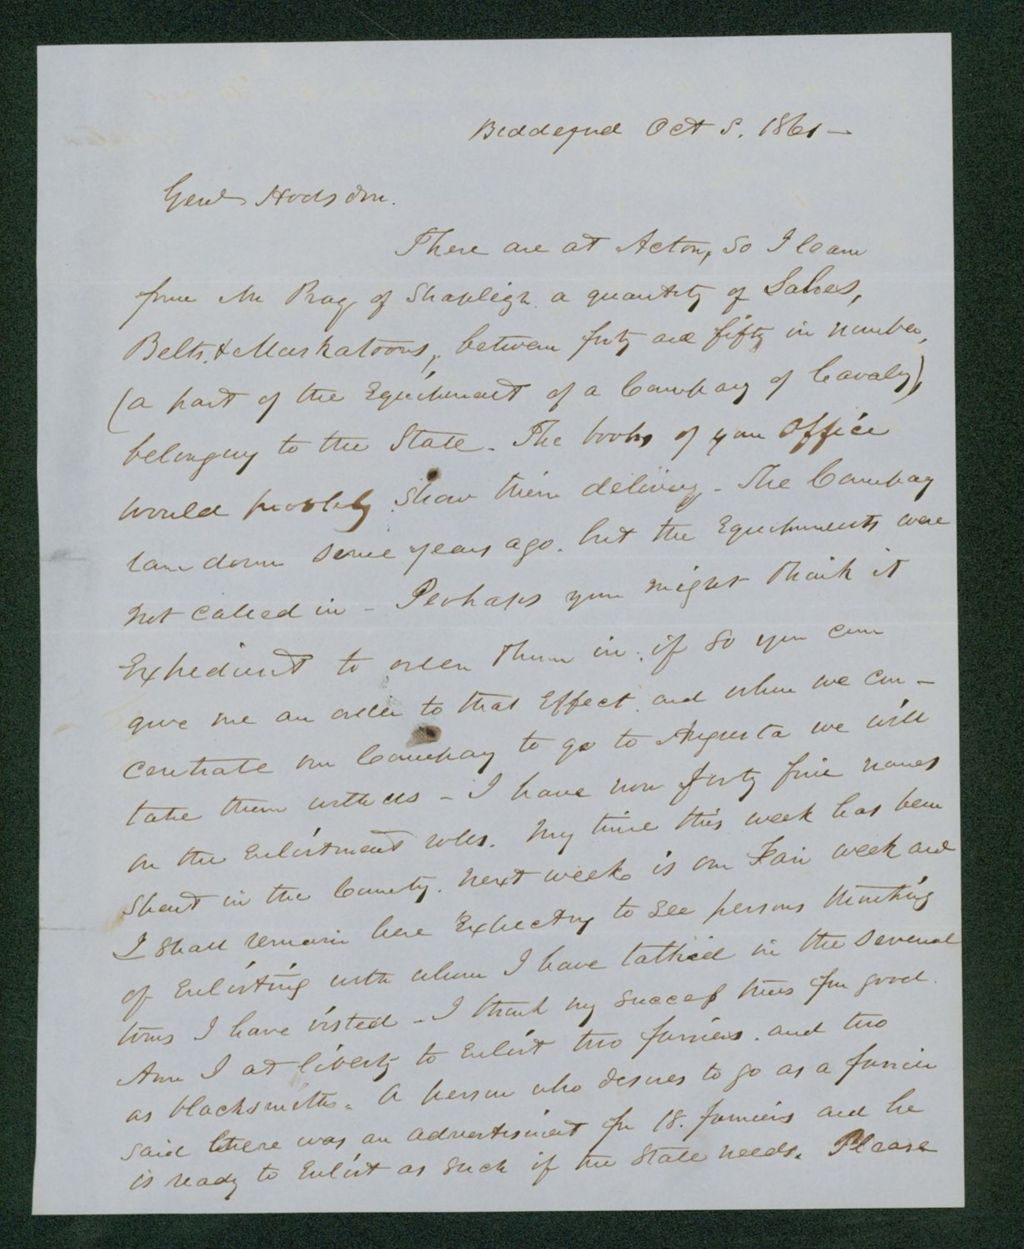 Biddeford Oct 5. 1861 -
Genl Hodsdon.
There are at Acton, so I learn
from Mr Prag of Shapleigh a quantity of Sabres,
Belts, & Muskatoons, between forty and fifty in number,
(a part of the Equipment of a Company of Cavalry),
belonging to the State - The books of your Office
would probably show their delivery - The Company
ran down some years ago. but the Equipments were
not called in - Perhaps you might think it
Expedient to order them in, if so you can
give me an order to that Effect and when we con-
centrate our Company to go to Augusta we will
take them with us - I have now forty five names
on the Enlistment rolls. My time this week has been
spent in the County. Next week is our Fair week and
I shall remain here Expecting to see persons thinking
of Enlisting with whom I have talked in the several
towns I have visted - I think my success thus far good.
Am I at liberty to Enlist two farriers. and two
as blacksmiths. A person who desires to go as a farrier
said there was an advertisment for 18. farriers and he
is ready to Enlist as such if the State needs. Please